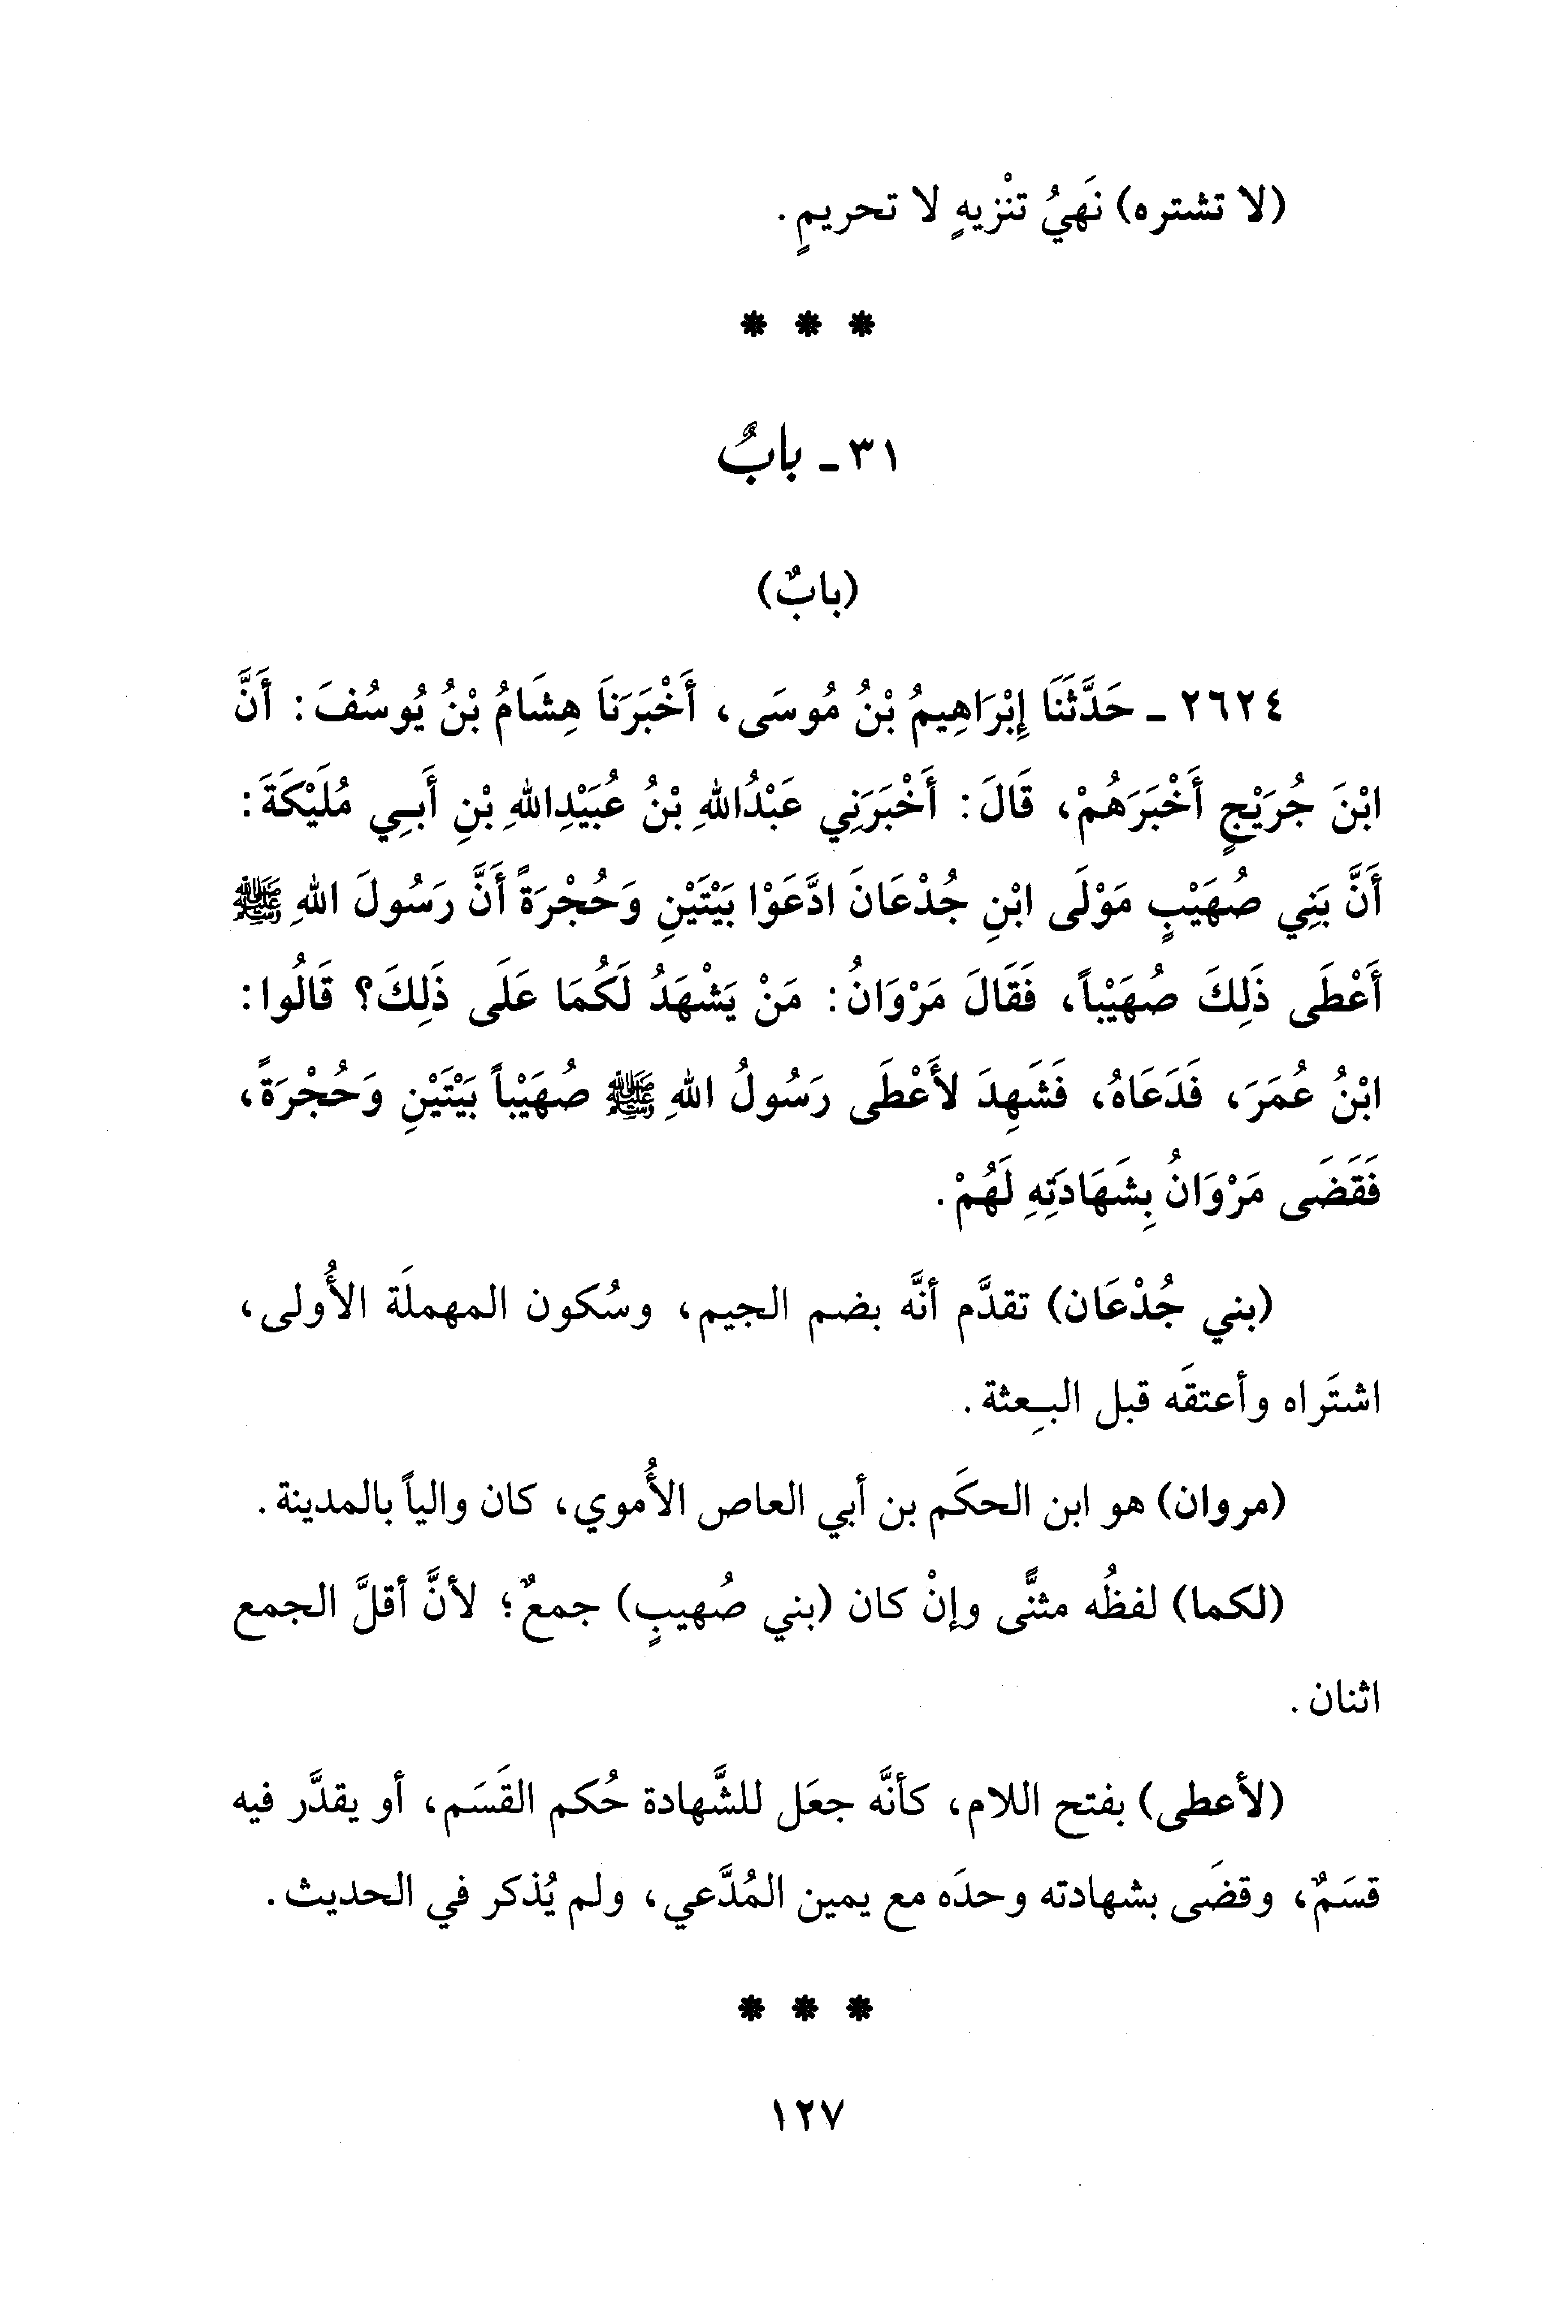 (لا تشتره) نَهيُ تنْزيهٍ لا تحريمٍ.
* * *
٣١ - بابٌ
(بابٌ)
٢٦٢٤ - حَدَّثَنَا إِبْرَاهِيمُ بْنُ مُوسَى، أَخْبَرَنَا هِشَامُ بْنُ يُوسُفَ: أَنَّ
ابْنَ جُرَيْجٍ أَخْبَرَهُمْ، قَالَ: أَخْبَرَنِي عَبْدُاللهِ بْنُ عُبَيْدِاللهِ بْنِ أَبِي مُلَيْكَةَ:
أَنَّ بَنِي صُهَيْبٍ مَوْلَى ابْنِ جُدْعَانَ ادَّعَوْا بَيْتَيْنِ وَحُجْرَةً أَنَّ رَسُولَ اللهِ ﷺ
أَعْطَى ذَلِكَ صُهَيْباً، فَقَالَ مَرْوَانُ: مَنْ يَشْهَدُ لَكُمَا عَلَى ذَلِكَ؟ قَالُوا:
ابْنُ عُمَرَ، فَدَعَاهُ، فَشَهِدَ لأَعْطَى رَسُولُ اللهِ ﷺ صُهَيْباً بَيْتَيْنِ وَحُجْرَةً،
فَقَضَى مَرْوَانُ بِشَهَادَتِهِ لَهُمْ.
(بني جُدْعَان) تقدَّم أنَّه بضم الجيم، وسُكون المهملَة الأُولى،
اشتَراه وأعتقَه قبل البِعثة.
(مروان) هو ابن الحكَم بن أبي العاص الأُموي، كان والياً بالمدينة.
(لكما) لفظُه مثنًّى وإنْ كان (بني صُهيبٍ) جمعٌ؛ لأنَّ أقلَّ الجمع
اثنان.
(لأعطى) بفتح اللام، كأنَّه جعَل للشَّهادة حُكم القَسَم، أو يقدَّر فيه
قسَمٌ، وقضَى بشهادته وحدَه مع يمين المُدَّعي، ولم يُذكر في الحديث.
* * *
١٢٧